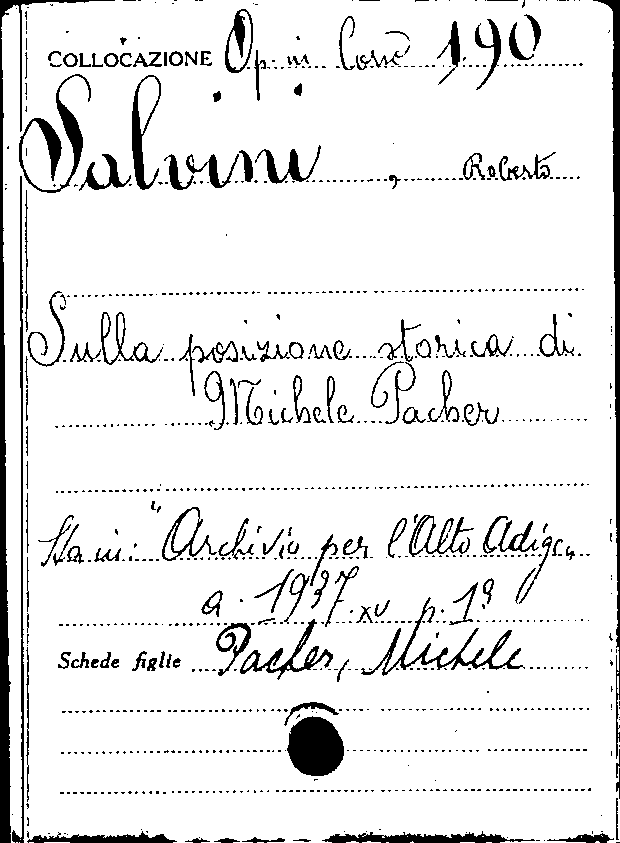 COLLOCAZIONE Op. in Corso 190
Salvini, Roberto
Sulla posizione storica di
Michele Pacher
Sta in: "Archivio per l'Alto Adige"
a. 1937. XV p. 1ª
Schede figlie Pacher, Michele